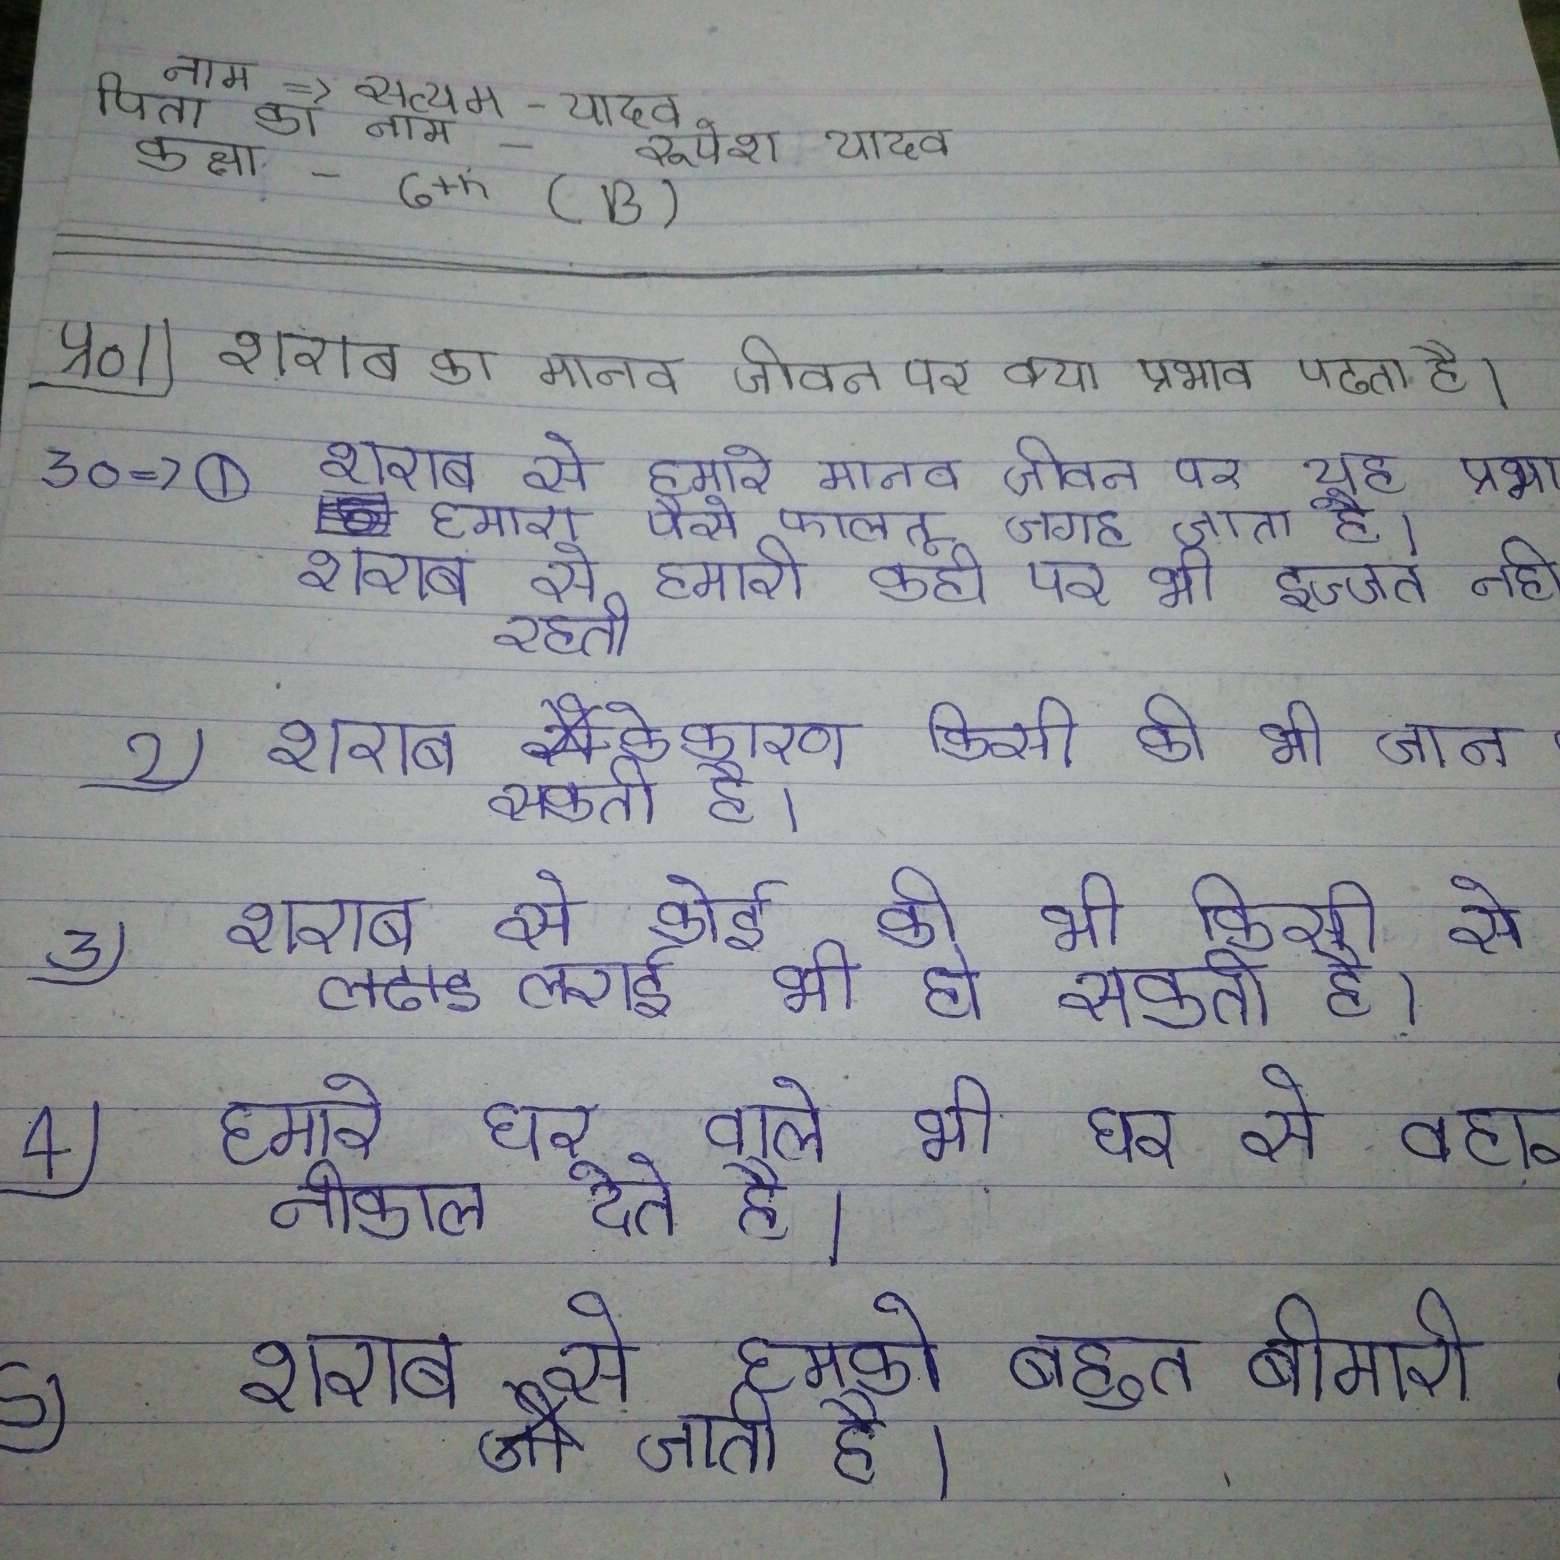 नाम => सत्यम - यादव
पिता का नाम - रूपेश यादव
कक्षा - 6th (B)
प्र०1) शराब का मानव जीवन पर क्या प्रभाव पढता है।
उ०=> ① शराब से हमारे मानव जीवन पर यह प्रभा
हमारा पैसे फालतू जगह जाता है।
शराब से हमारी कही पर भी इज्जत नही
रहती
2) शराब के कारण किसी की भी जान
सकती है।
3) शराब से कोई की भी किसी से
लराई भी हो सकती है।
4) हमारे घर वाले भी घर से वहार
नीकाल देते है।
5) शराब से हमको बहुत बीमारी
जाती है।